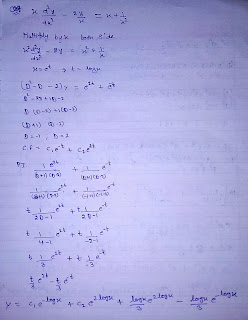 x d²y/dx² - 2y/x = x + 1/x²
Multiply by x both side
x² d²y/dx² - 2y = x² + 1/x
x = eᵗ , t = log x
(D² - D - 2) y = e²ᵗ + e⁻ᵗ
D² - 2D + 1D - 2
D (D-2) + 1(D-2)
(D+1) (D-2)
D = -1 , D = 2
C.F = C₁ e⁻ᵗ + C₂ e²ᵗ
P.I
1/(D+1)(D-2) e²ᵗ + 1/(D+1)(D-2) e⁻ᵗ
t 1/2D-1 e²ᵗ + t 1/2D-1 e⁻ᵗ
t 1/4-1 e²ᵗ + t 1/-2-1 e⁻ᵗ
t 1/3 e²ᵗ + t 1/-3 e⁻ᵗ
t/3 e²ᵗ - t/3 e⁻ᵗ
y = C₁ e⁻ˡᵒᵍˣ + C₂ e²ˡᵒᵍˣ + log x/3 e²ˡᵒᵍˣ - log x/3 e⁻ˡᵒᵍˣ